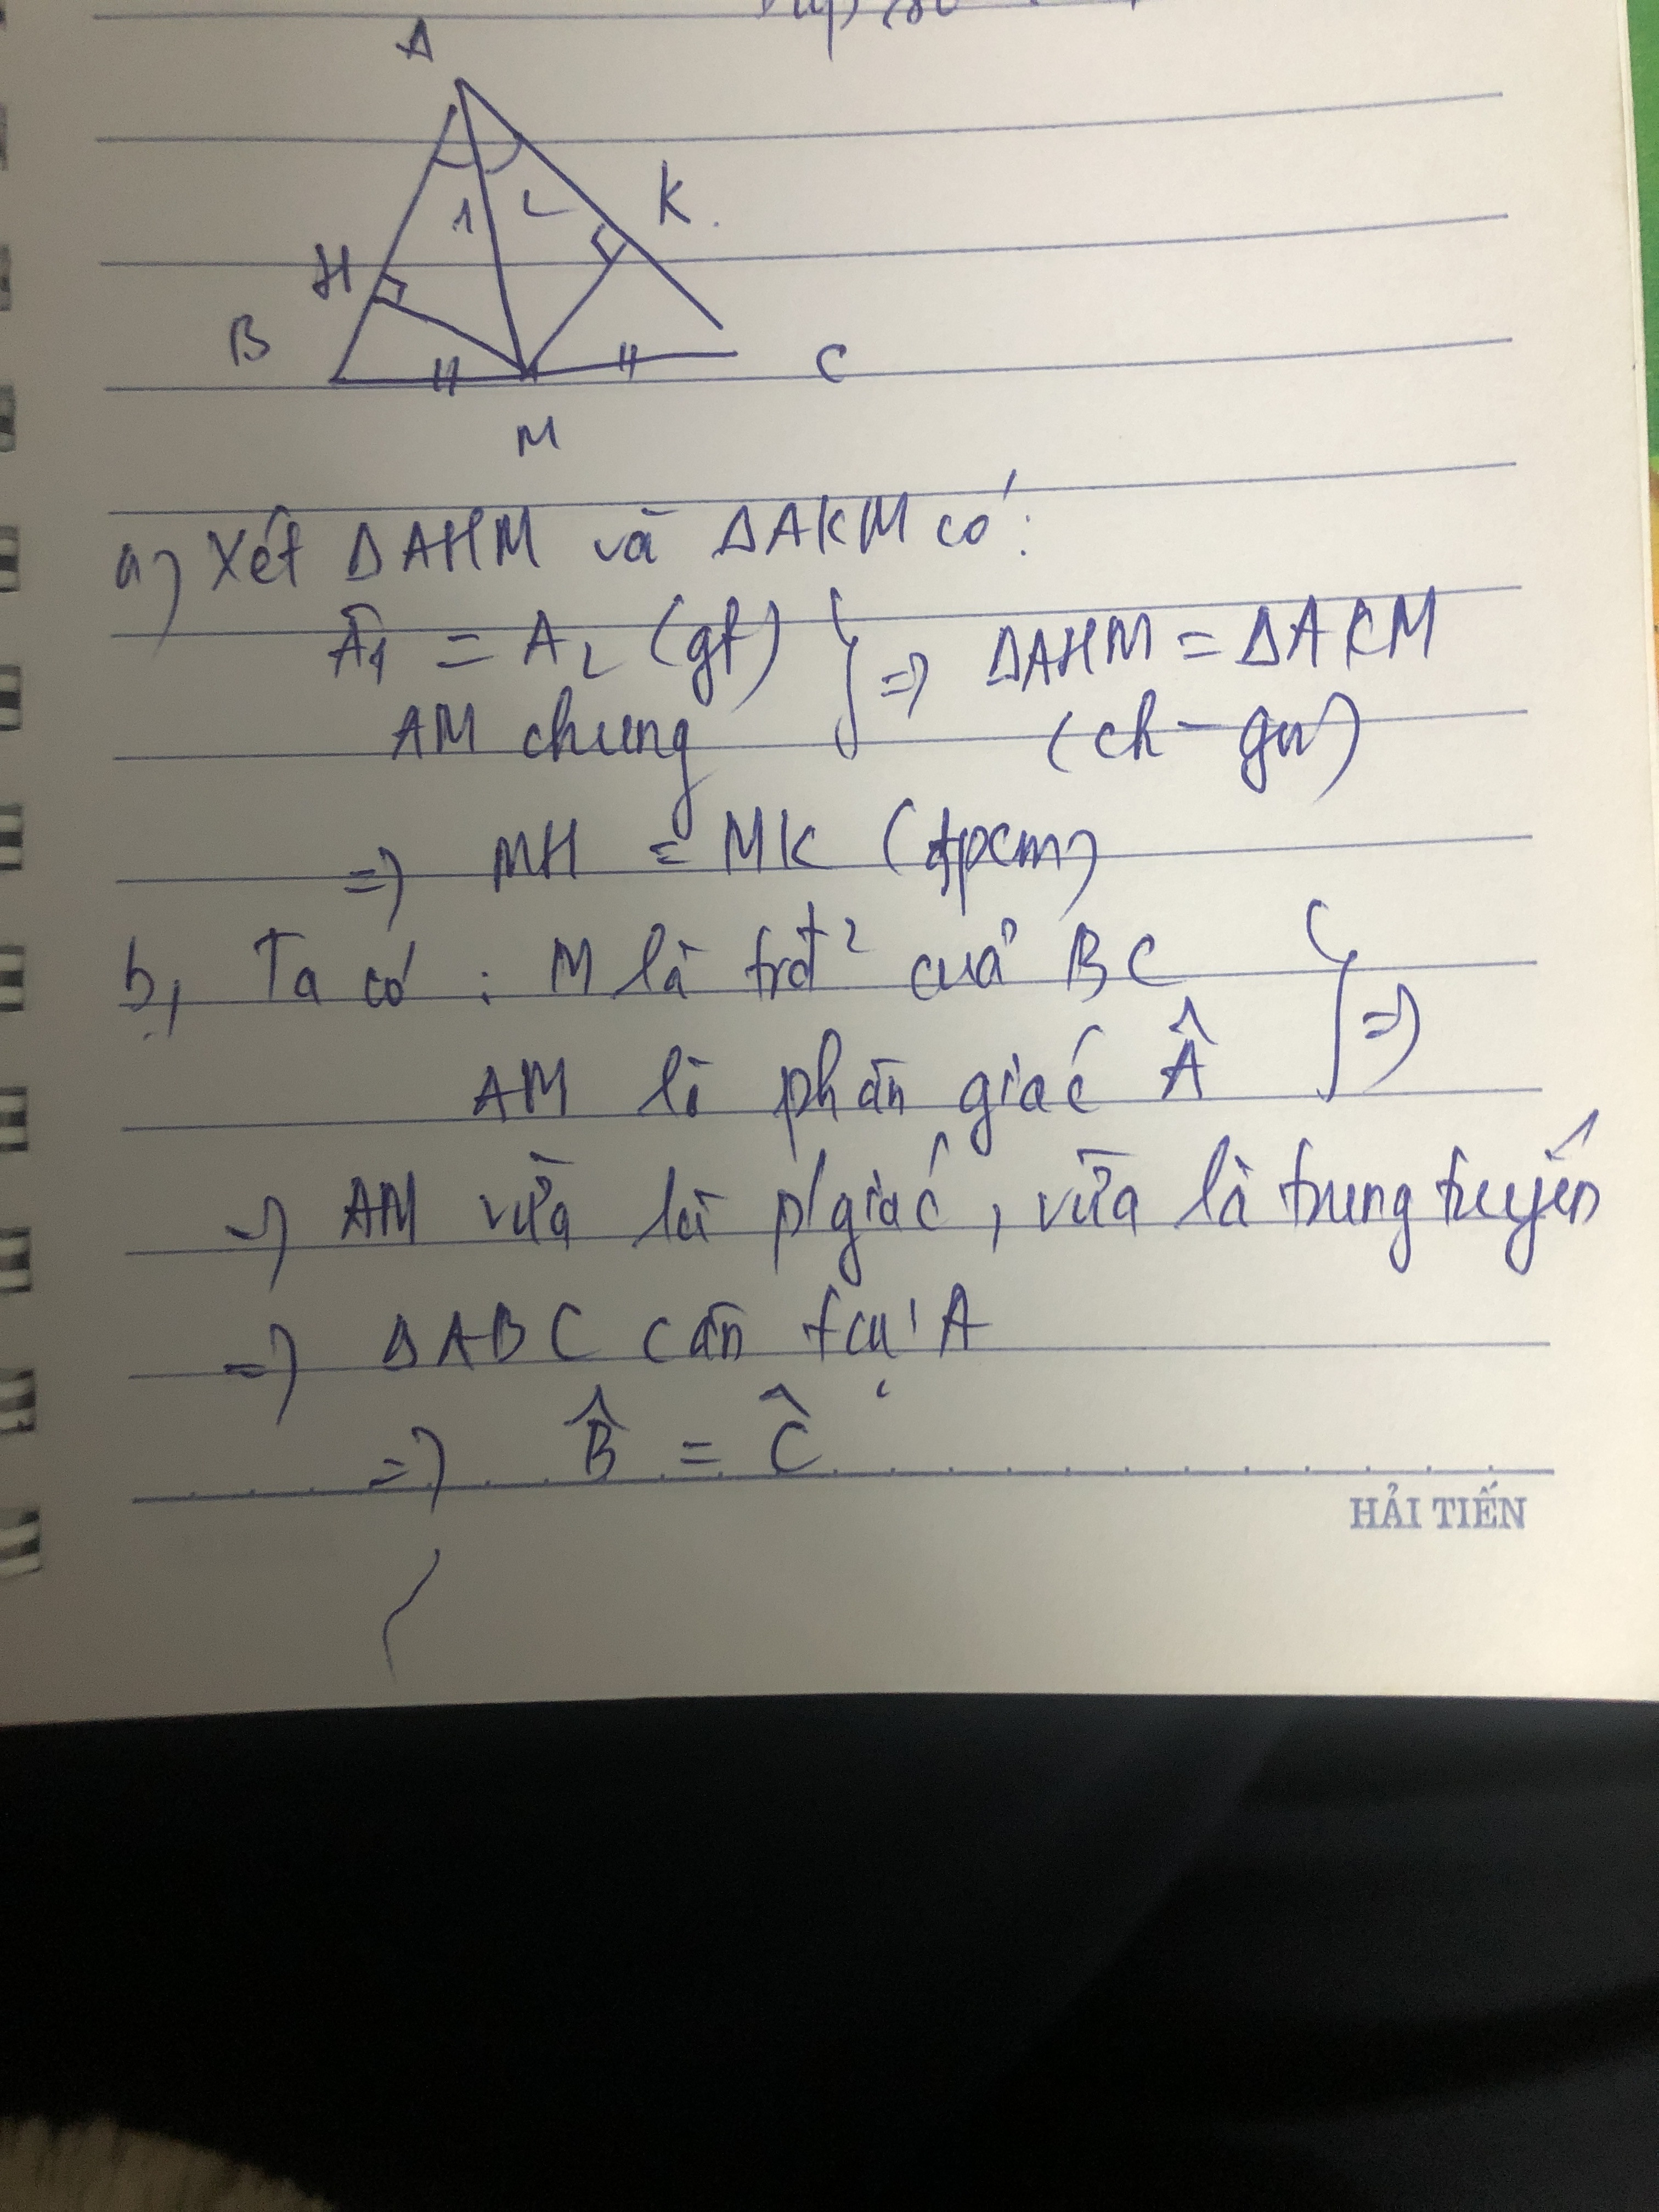 A
1
2
K.
H
B
C
M
a) Xét ΔAHM và ΔAKM có:
Â1 = A2 (gt) } => ΔAHM = ΔAKM
AM chung (ch - gn)
=> MH = MK (đpcm)
b, Ta có : M là trđ² của BC
AM là phân giác Â } =>
=> AM vừa là p/giác, vừa là trung tuyến
=> ΔABC cân tại A
=> B̂ = Ĉ
HẢI TIẾN